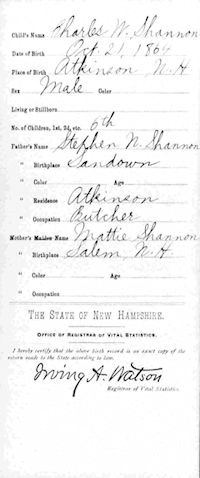 Child's Name Charles W. Shannon
Date of Birth Oct. 21, 1864
Place of Birth Atkinson N. H
Sex Male Color
Living or Stillborn
No. of Children, 1st, 2d, etc. 6th
Father's Name Stephen N. Shannon
" Birthplace Sandown
" Color Age
" Residence Atkinson
" Occupation Butcher
Mother's Maiden Name Mattie Shannon
" Birthplace Salem N. H.
" Color Age
" Occupation
THE STATE OF NEW HAMPSHIRE.
OFFICE OF REGISTRAR OF VITAL STATISTICS.
I hereby certify that the above birth record is an exact copy of the
return made to the State according to law.
Irving A. Watson
Registrar of Vital Statistics